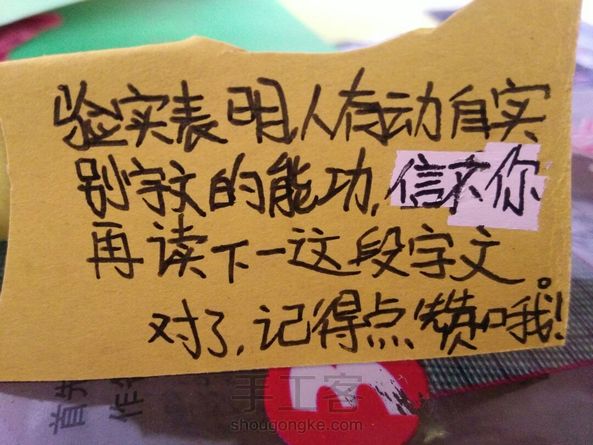 验实表明,人有动自实
别字文的能功,信不你
再读下一这段字文。
对了,记得点赞哦!
手工客
shougongke.com